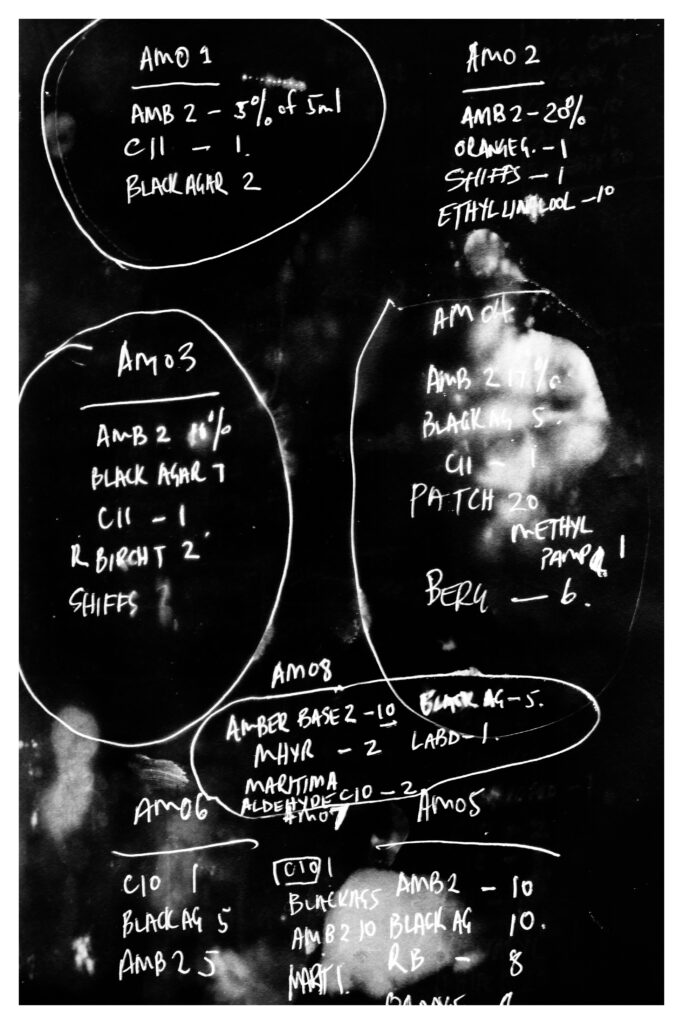 AMO 1
AMB 2 – 5% of 5ml
C11 – 1.
BLACK AGAR 2
AMO 2
AMB 2 – 20%
ORANGE G. – 1
SHIFFS – 1
ETHYL LINALOOL – 10
AMO3
AMB 2 11%
BLACK AGAR 7
C11 – 1
R BIRCH T 2
SHIFFS
AMO4
AMB 2 17%
BLACK AG 5.
C11 – 1
PATCH 20
METHYL
PAMP 1
BERG — 6.
AMO8
AMBER BASE 2 – 10 BLACK AG – 5.
MHYR – 2 LABD – 1.
MARITIMA
ALDEHYDE C10 – 2
AMO6
C10 1
BLACK AG 5
AMB 2 5
AMO7
C10 1
BLACK AG 5
AMB 2 10
MARIT 1.
AMO5
AMB 2 – 10
BLACK AG 10.
RB – 8